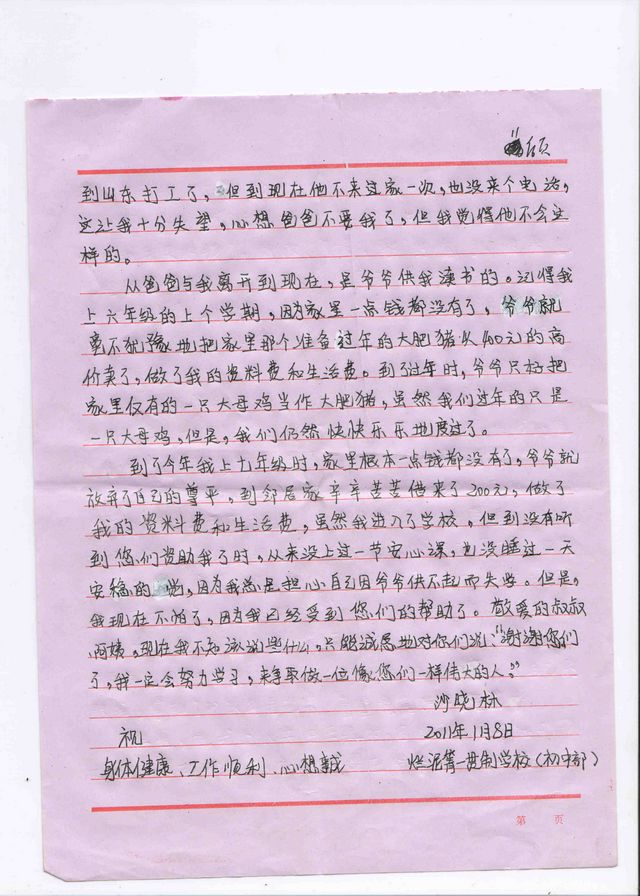 页
到山东打工了，但到现在他不来过家一次，也没来个电话，
这让我十分失望，心想爸爸不要我了，但我觉得他不会这
样的。
从爸爸与我离开到现在，是爷爷供我读书的。记得我
上六年级的上个学期，因为家里一点钱都没有了，爷爷就
离不犹豫地把家里那个准备过年的大肥猪以400元的高
价卖了，做了我的资料费和生活费。到了过年时，爷爷只好把
家里仅有的一只大母鸡当作大肥猪，虽然我们过年的只是
一只大母鸡，但是，我们仍然快快乐乐地度过了。
到了今年我上七年级时，家里根本一点钱都没有了，爷爷就
放弃了自己的尊严，到邻居家辛辛苦苦借来了200元，做了
我的资料费和生活费，虽然我进入了学校，但到没有听
到您们资助我了时，从来没上过一节安心课，也没睡过一天
安稳的觉，因为我总是担心自己因爷爷供不起而失学。但是，
我现在不怕了，因为我已经受到您们的帮助了。敬爱的叔叔
阿姨，现在我不知该说些什么，只能诚恳地对你们说：“谢谢您们
了，我一定会努力学习，来争取做一位像您们一样伟大的人。”
沙晓林
祝 2011年11月8日
身体健康、工作顺利、心想事诚 烂泥箐一贯制学校（初中部）
第 页